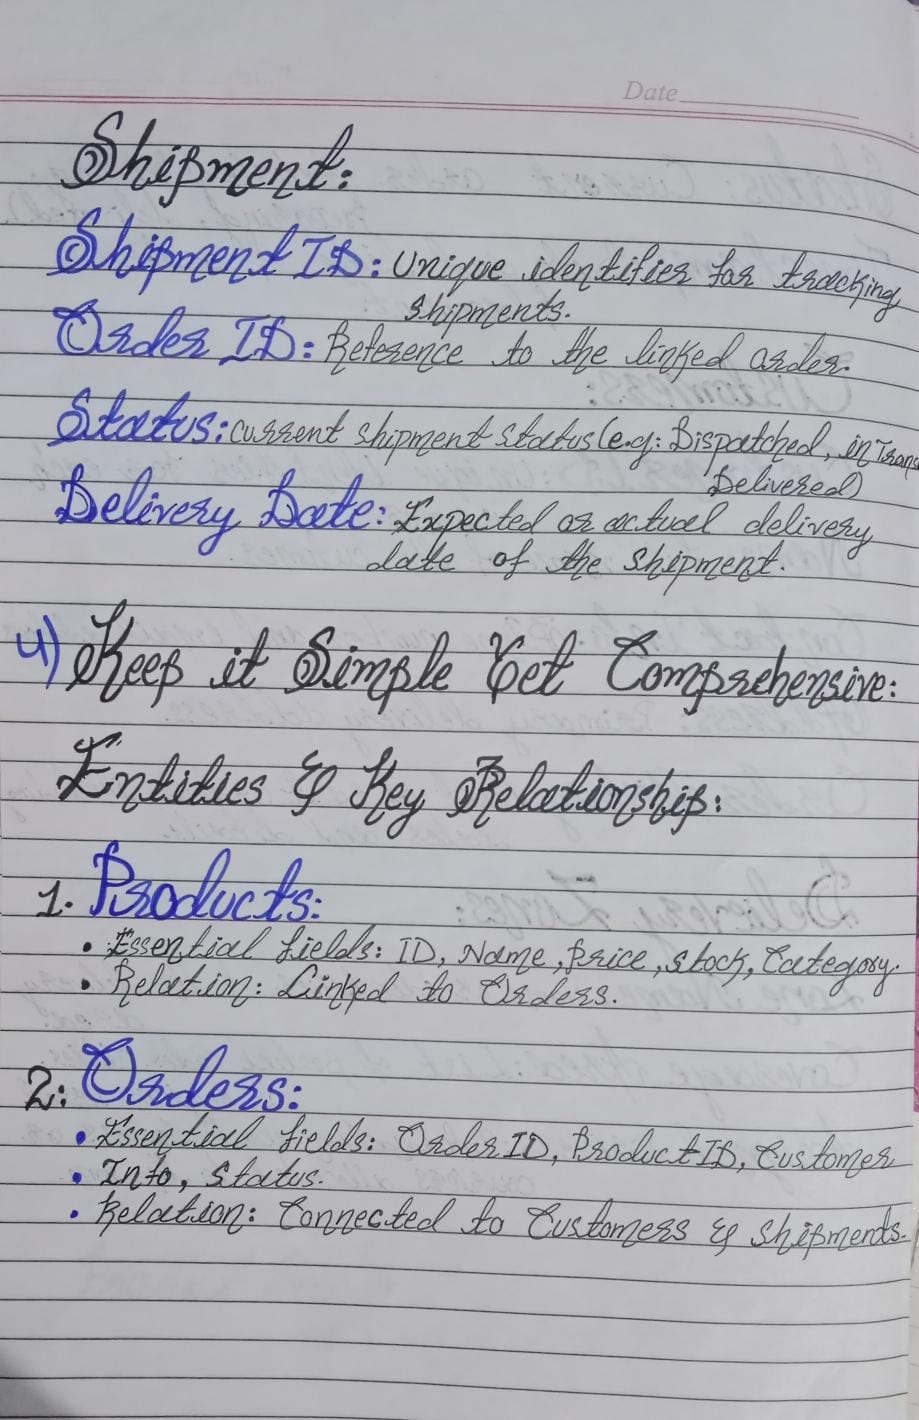 Date
Shipment:
Shipment ID: Unique identifier for tracking
shipments.
Order ID: Reference to the linked order.
Status: current shipment status (e.g: Dispatched, in Trans
Delivered)
Delivery Date: Expected or actual delivery
date of the shipment.
4) Keep it Simple Yet Comprehensive:
Entities & Key Relationship:
1. Products:
• Essential fields: ID, Name, Price, Stock, Category.
• Relation: Linked to Orders.
2: Orders:
• Essential fields: Order ID, Product ID, Customer
• Info, Status.
• Relation: Connected to Customers & Shipments.